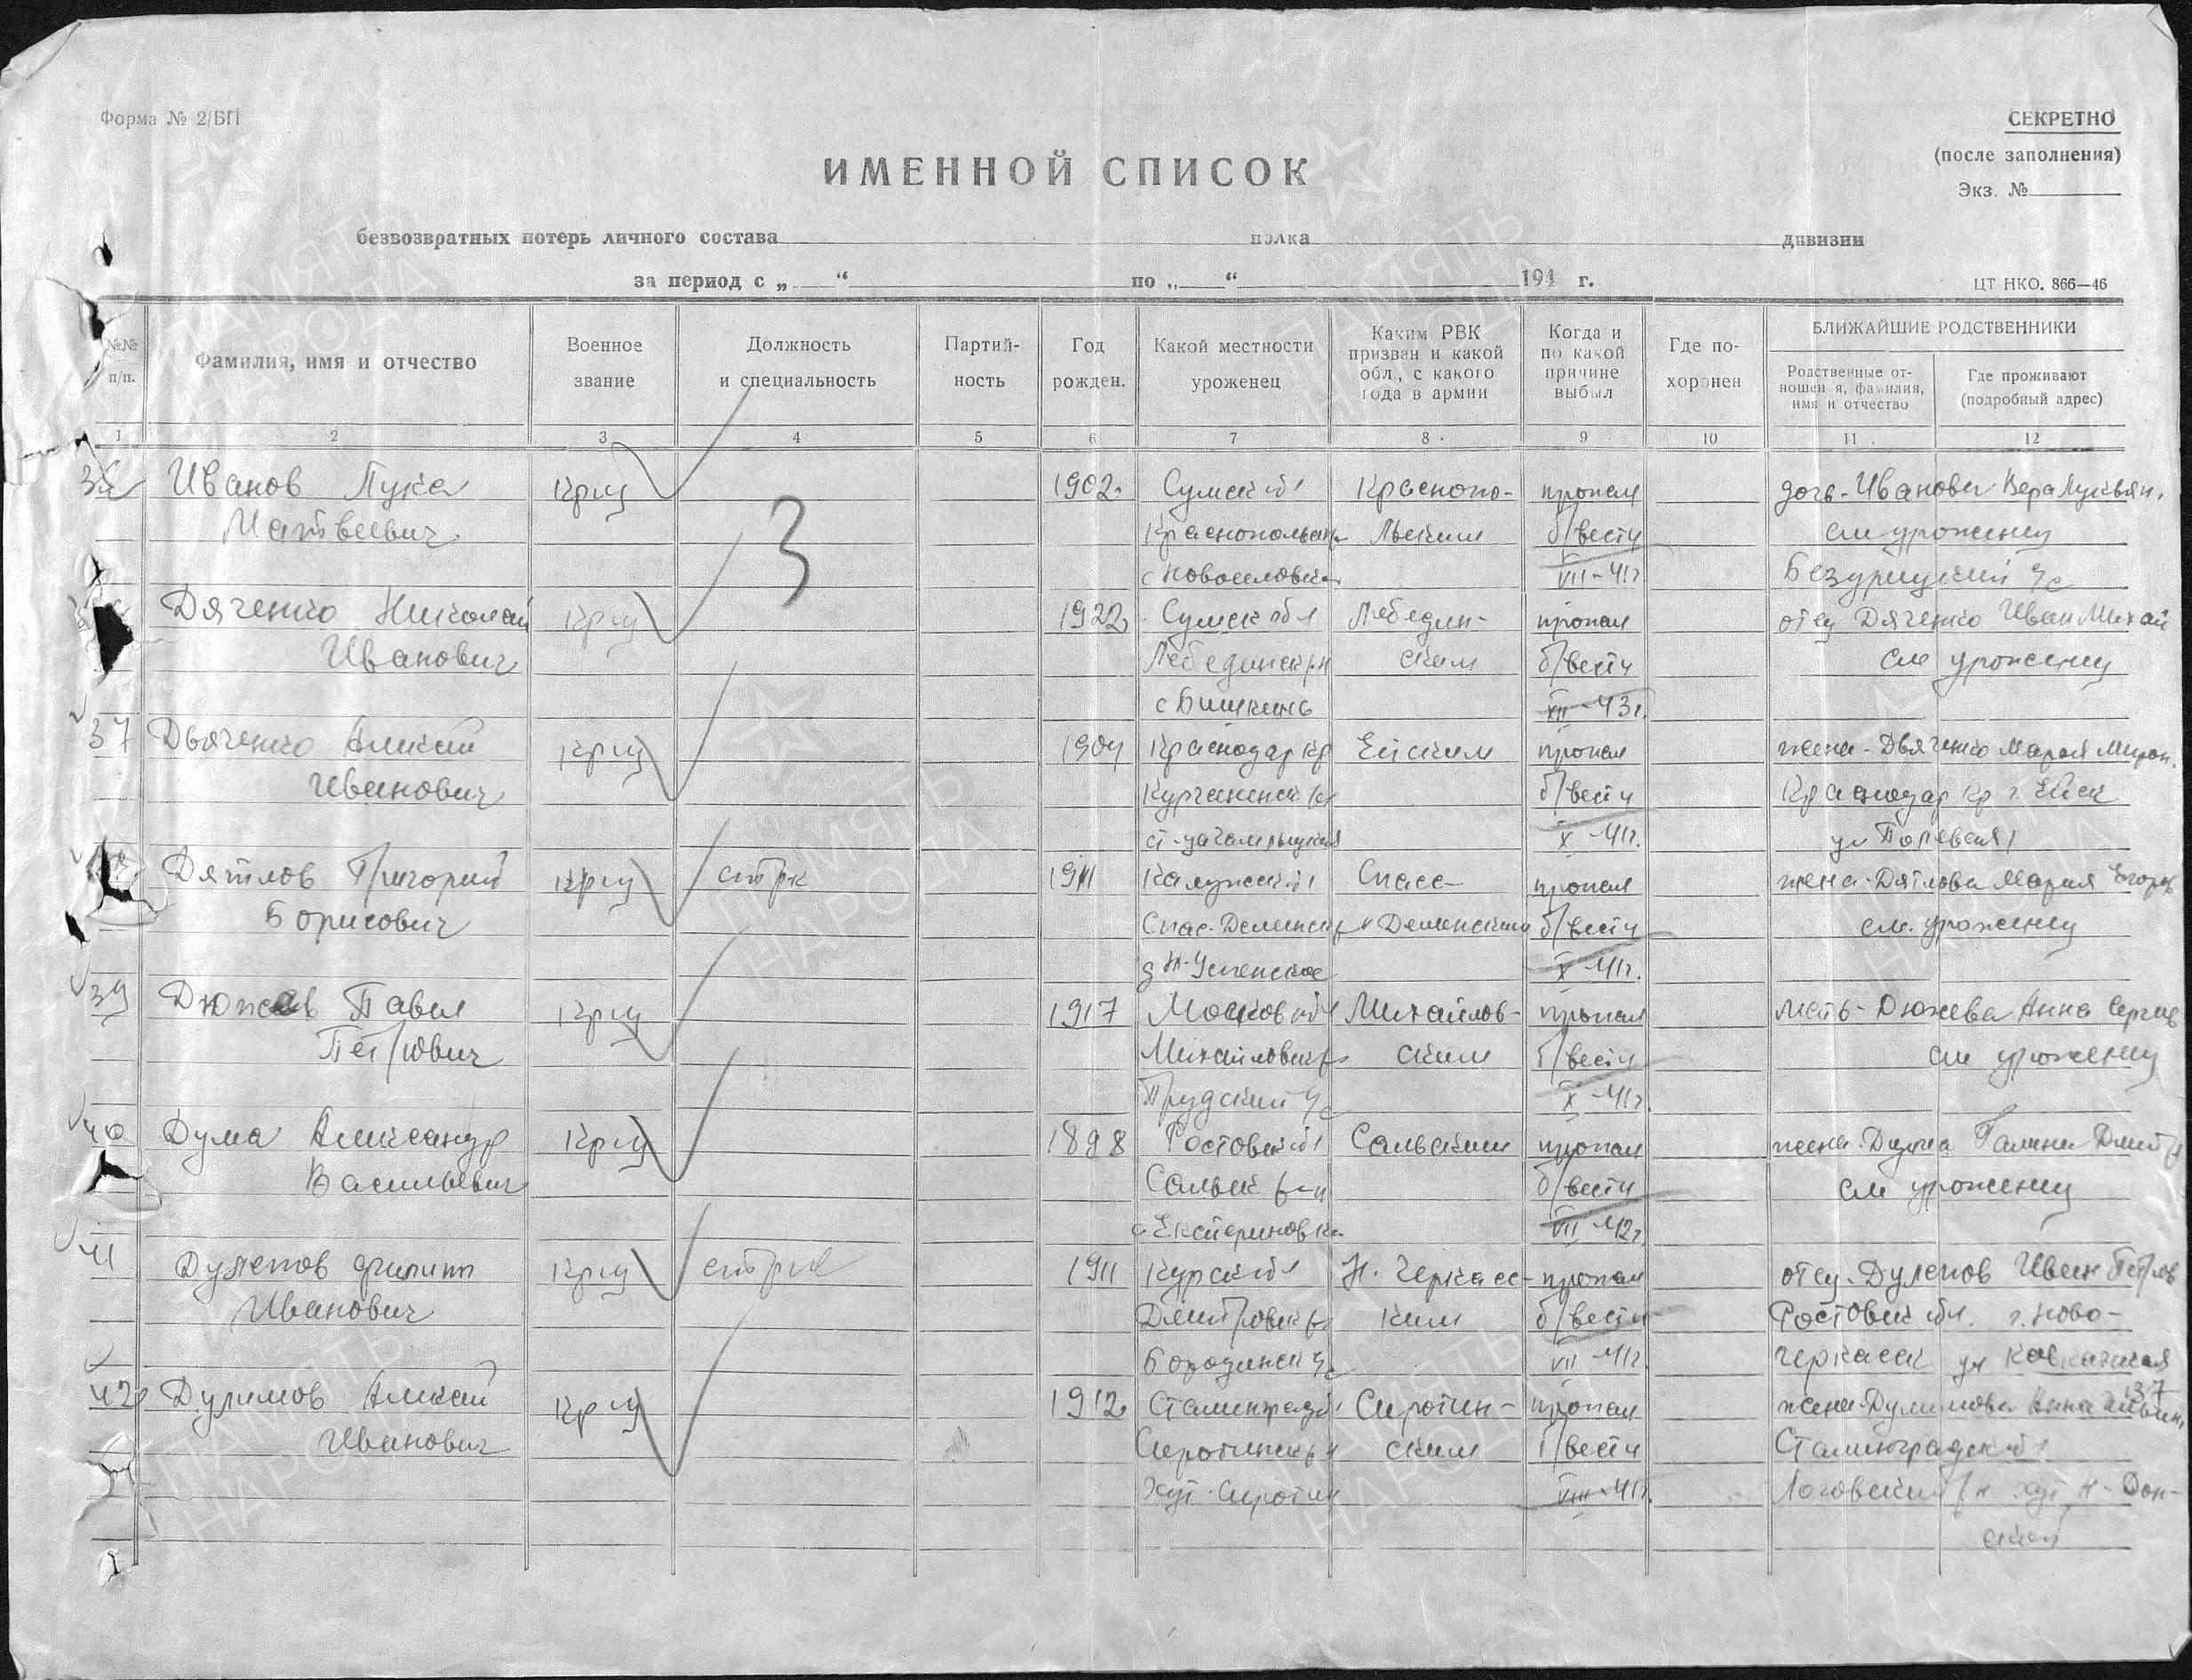 Форма № 2/БП
СЕКРЕТНО
(после заполнения)
Экз. №
ИМЕННОЙ СПИСОК
безвозвратных потерь личного состава полка дивизии
за период с „ “ по „ “ 194 г.
ЦТ НКО. 866—46
№№ п/п.
Фамилия, имя и отчество
Военное звание
Должность и специальность
Партий-
ность
Год рожден.
Какой местности уроженец
Каким РВК
призван и какой
обл., с какого
года в армии
Когда и
по какой
причине
выбыл
Где по-
хоронен
БЛИЖАЙШИЕ РОДСТВЕННИКИ
Родственные от-
ношен я, фамилия,
имя и отчество
Где проживают
(подробный адрес)
1 2 3 4 5 6 7 8 9 10 11 12
Иванов Лука кр-ц 1902 Сумск обл Краснопо- пропал дочь - Иванова Вера Лукьян.
Матвеевич Краснопольск льским б/вести см уроженец
с Новоселовка VII-41г
3
Дяченко Николай кр-ц 1922 Сумск обл Лебедин- пропал отец Дяченко Иван Михай
Иванович Лебединск р-н ским б/вести см уроженец
с Бишкинь XII-43г.
37 Дьяченко Алексей кр-ц 1904 Краснодар кр Ейским пропал жена - Дьяченко Мария Мирон.
Иванович б/вести Краснодар кр г. Ейск
X-41г. ул
Дятлов Григорий кр-ц стрк 1911 Калужск обл Спасс- пропал жена - Дятлова Мария Егоров
Борисович Спас-Деменск р Деменским б/вести см. уроженец
X-41г.
39 Дюжев Павел кр-ц 1917 Москов обл Михайлов- пропал мать - Дюжева Анна Сергеев
Петрович Михайловск р ским б/вести см уроженец
X-41г.
40 Дума Александр кр-ц 1898 Ростовск обл Сальским пропал жена - Дума Галина Дмитр
Васильевич Сальск р-н б/вести см уроженец
с Екатериновка VII-42г
41 Дулепов Филипп кр-ц стрк 1911 Курск обл Н. Черкасс- пропал отец - Дулепов Иван Петров
Иванович Дмитровск р ким б/вести Ростовск обл. г. Ново-
с/с VII-41г черкасск ул Кавказская
137
42 Дулимов Алексей кр-ц 1912 Сталинград обл Сиротин- пропал жена - Дулимова Анна
Иванович Сиротинск р-н ским б/вести Сталинградск обл
хут. Сиротин VIII-41г. Логовский р-н хут Н-Дон-
ской